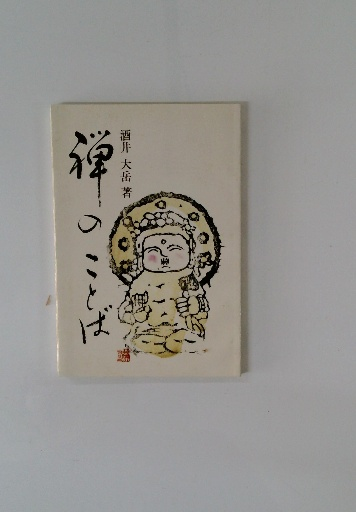 禅のことば
酒井大岳著